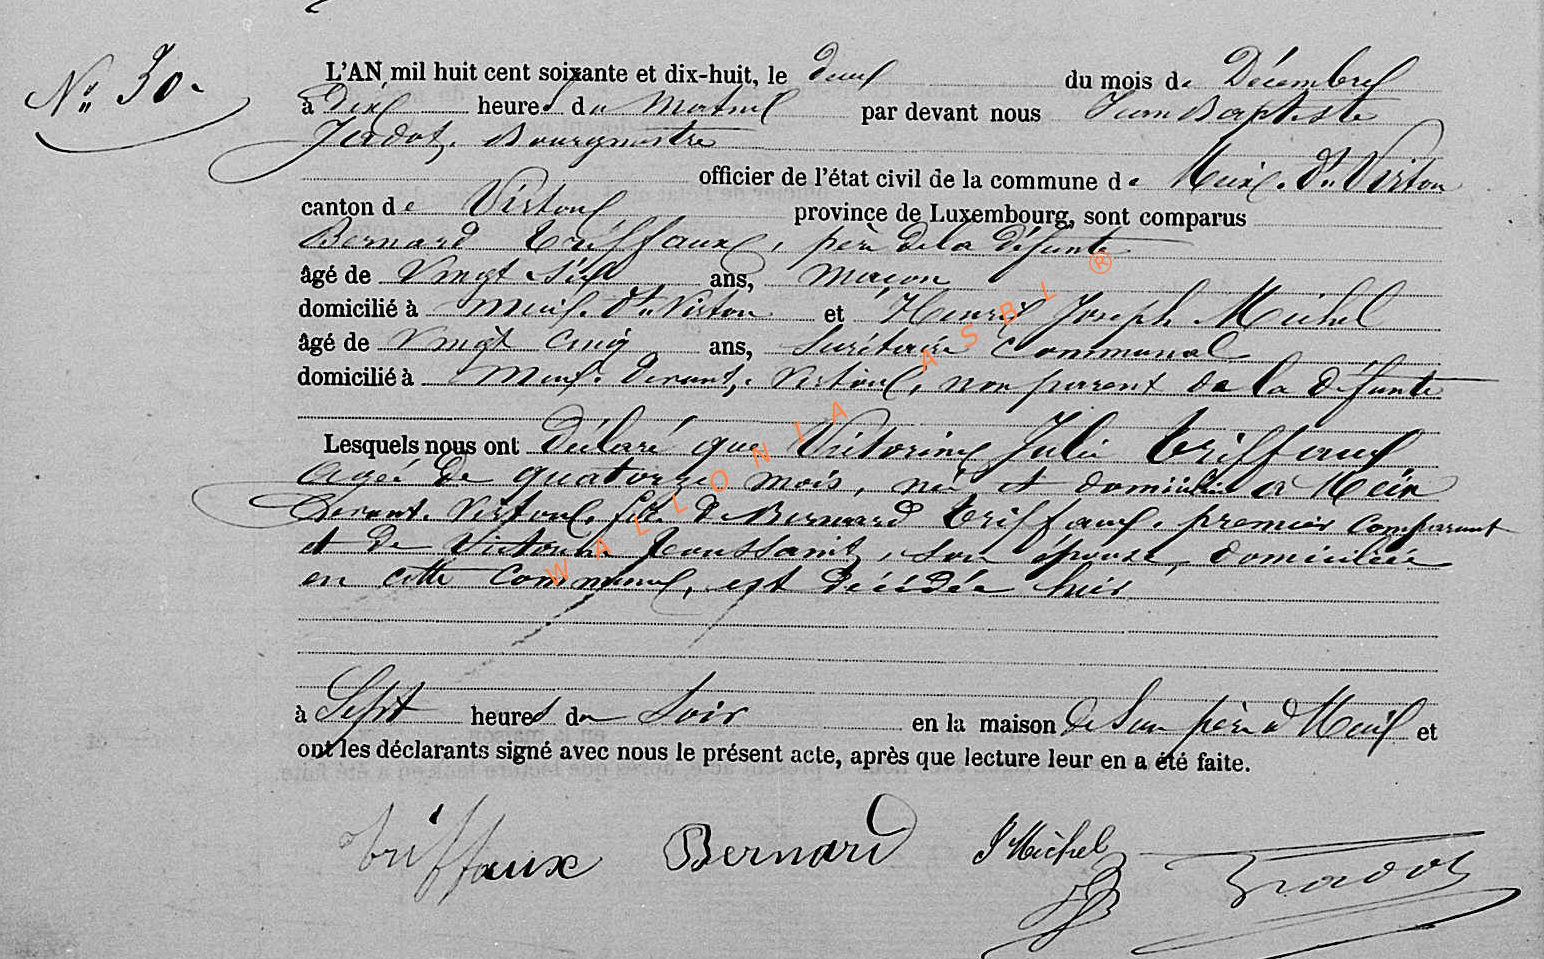 N° 30.
L'AN mil huit cent soixante et dix-huit, le deux du mois de Décembre
à dix heures du matin par devant nous Jean Baptiste
Jradot, Bourgmestre
officier de l'état civil de la commune de Meix. dt Virton
canton de Virton province de Luxembourg, sont comparus
Bernard Triffaux, père de la défunte
âgé de Vingt six ans, maçon
domicilié à Meix. dt Virton et Henri Joseph Michel
âgé de Vingt cinq ans, Secrétaire Communal
domicilié à Meix. devant. Virton, non parent de la défunte
Lesquels nous ont déclaré que Victorine Julie Triffaux
agée de quatorze mois, née et domiciliée à Meix
Devant. Virton, fille de Bernard Triffaux. premier comparant
et de Victorine Toussaint, son épouse, domiciliée
en cette commune, est décédée hier
à Sept heures du Soir en la maison de son père à Meix et
ont les déclarants signé avec nous le présent acte, après que lecture leur en a été faite.
Triffaux Bernard J Michel Jradot
WALLONIA ASBL ®